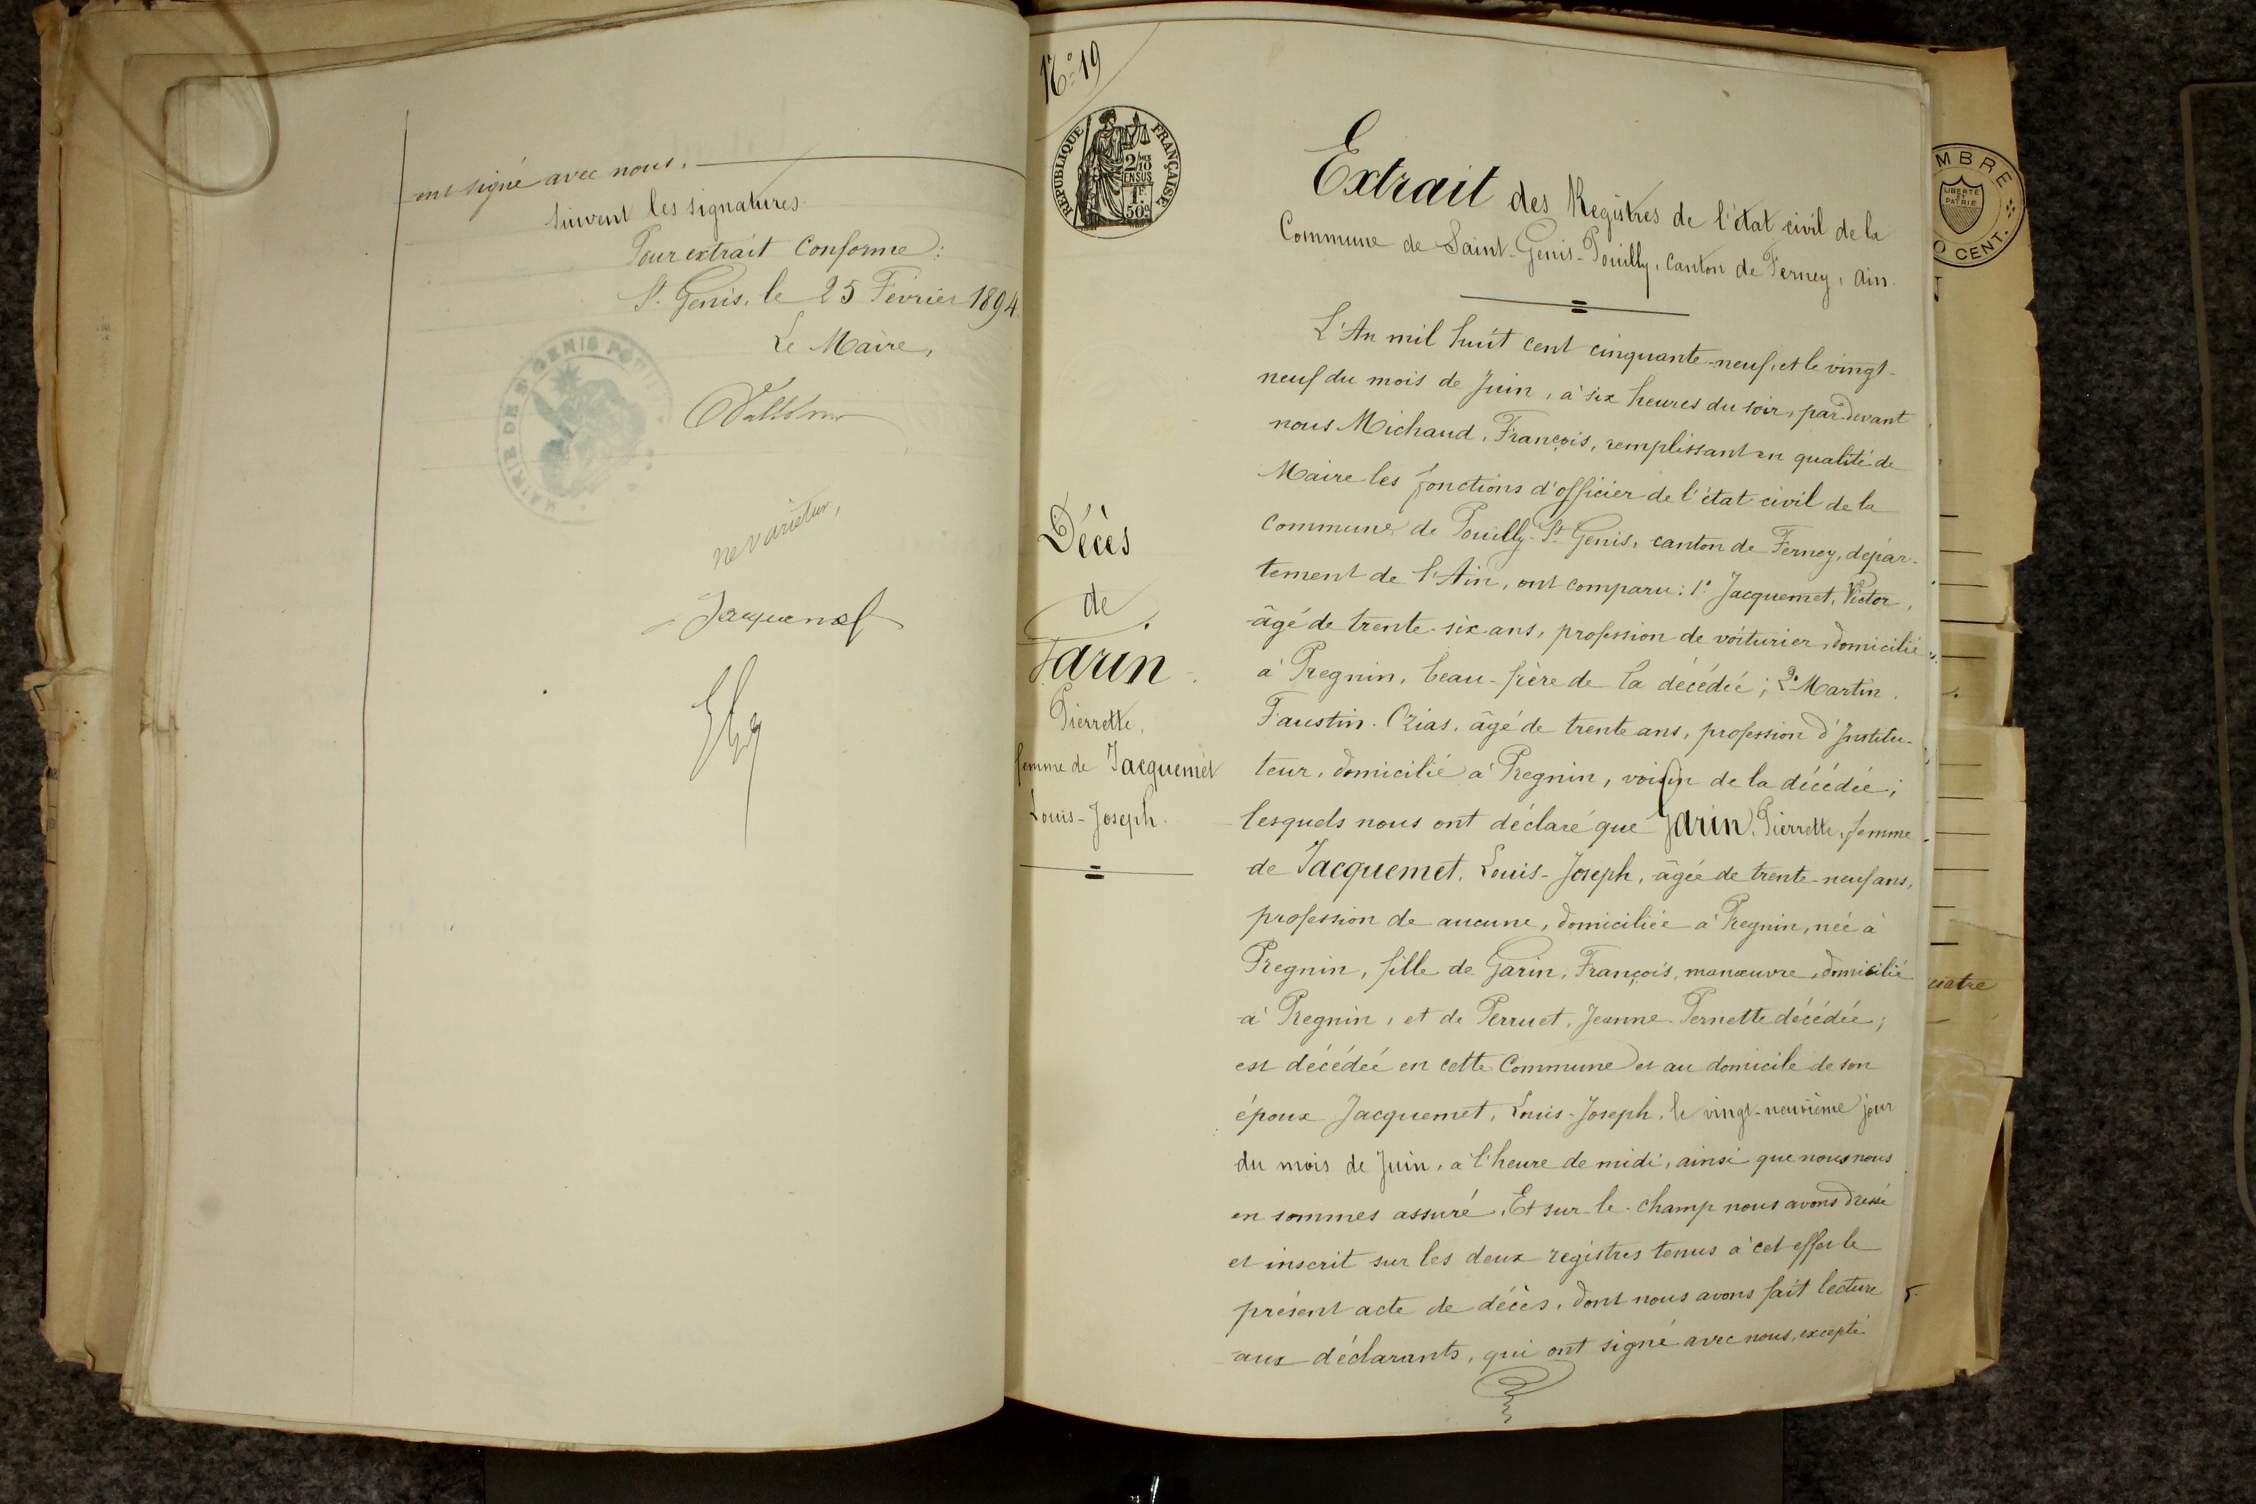 ont signé avec nous.
Suivent les signatures
Pour extrait Conforme :
St. Genis, le 25 Février 1894.
Le Maire,
MAIRIE DE ST GENIS POUI
ne varietur,
Jacquemet
No 19
REPUBLIQUE FRANÇAISE
2/10
EN SUS
1F.
50c
Extrait des Registres de l'état civil de la
Commune de Saint-Genis-Pouilly, canton de Ferney, Ain.
Décès
de
Garin
Pierrette,
femme de Jacquemet
Louis-Joseph.
L'An mil huit cent cinquante-neuf, et le vingt-
neuf du mois de Juin, à six heures du soir, par devant
nous Michaud, François, remplissant en qualité de
Maire les fonctions d'officier de l'état civil de la
commune de Pouilly-St Genis, canton de Ferney, dépar-
tement de l'Ain, ont comparu : 1° Jacquemet, Victor,
âgé de trente-six ans, profession de voiturier, domicilié
à Pregnin, beau-frère de la décédée ; 2° Martin
Faustin Ozias, âgé de trente ans, profession d'Institu-
teur, domicilié à Pregnin, voisin de la décédée ;
lesquels nous ont déclaré que Garin, Pierrette, femme
de Jacquemet, Louis-Joseph, âgée de trente-neuf ans,
profession de aucune, domiciliée à Pregnin, née à
Pregnin, fille de Garin, François, manœuvre, domicilié
à Pregnin, et de Perruet, Jeanne Pernette décédée ;
est décédée en cette Commune et au domicile de son
époux Jacquemet, Louis-Joseph, le vingt-neuvième jour
du mois de Juin, à l'heure de midi, ainsi que nous nous
en sommes assuré. Et sur-le-champ nous avons dressé
et inscrit sur les deux registres tenus à cet effet le
présent acte de décès, dont nous avons fait lecture
aux déclarants, qui ont signé avec nous, excepté
MBRE
LIBERTÉ ET PATRIE
0 CENT.